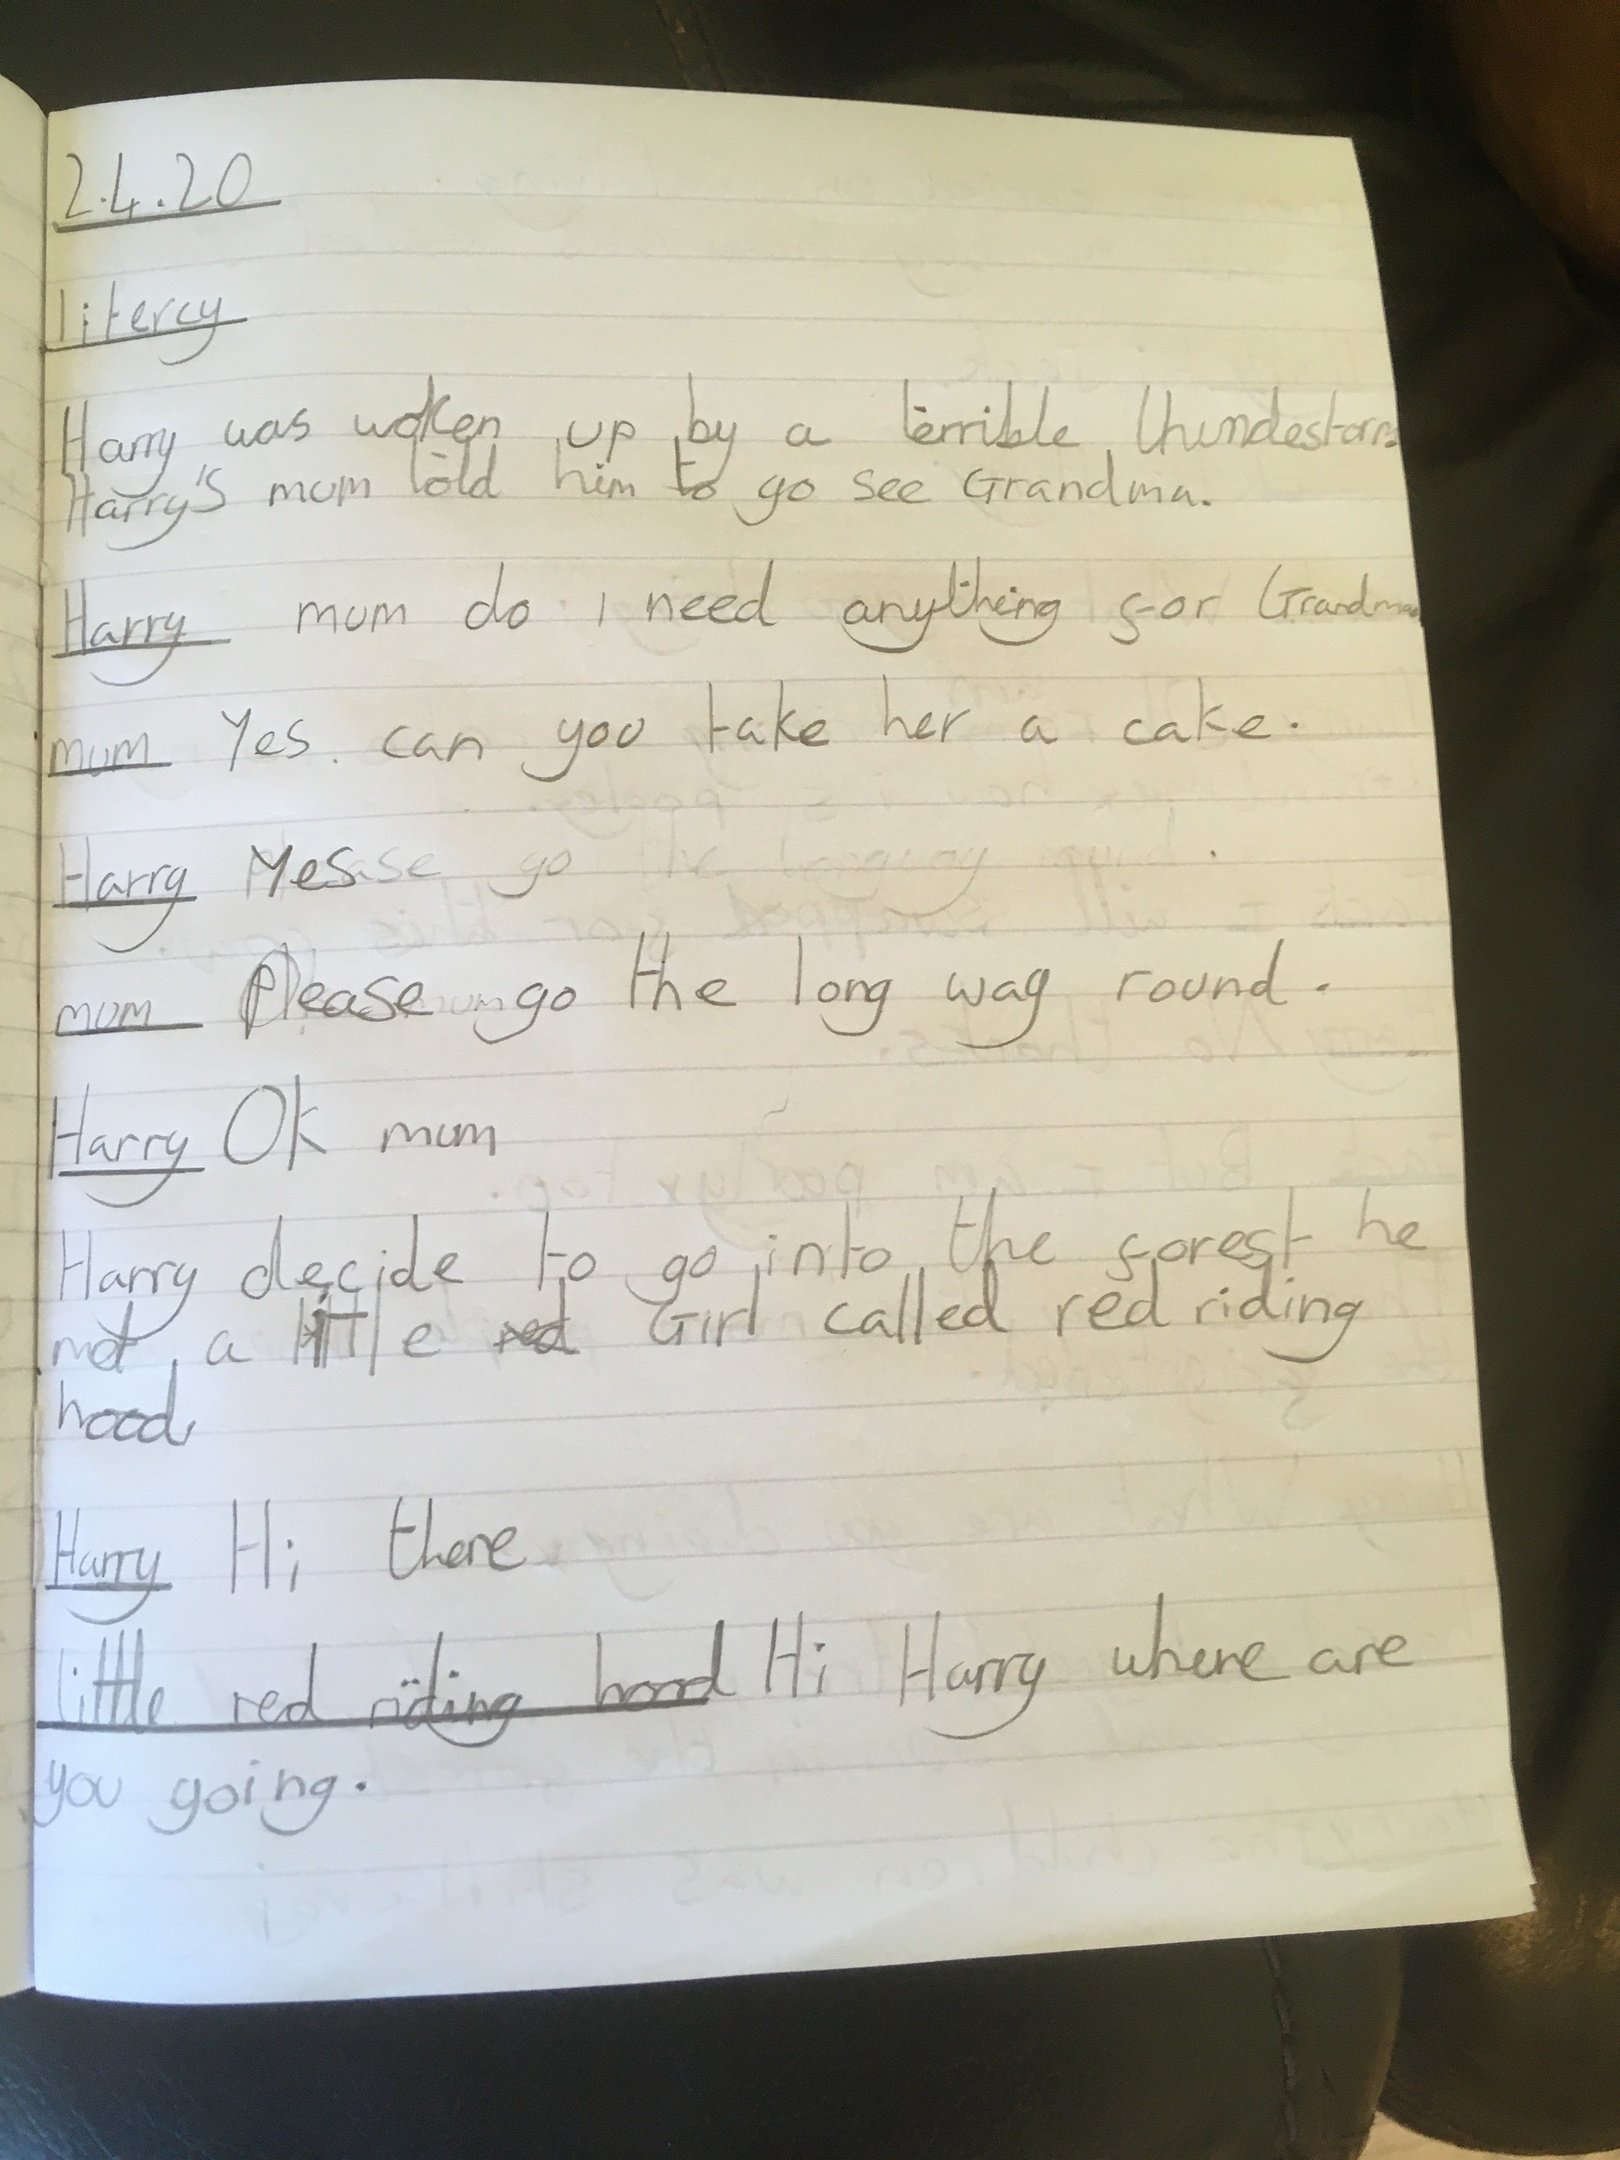 2.4.20
litercy
Harry was woken up by a terrible thundestorm.
Harry's mum told him to go see Grandma.
Harry mum do I need anything for Grandma
mum Yes. can you take her a cake.
Harry Yes
mum Please go the long way round.
Harry Ok mum
Harry decide to go into the forest he
met a little red Girl called red riding
hood
Harry Hi there
little red riding hood Hi Harry where are
you going.